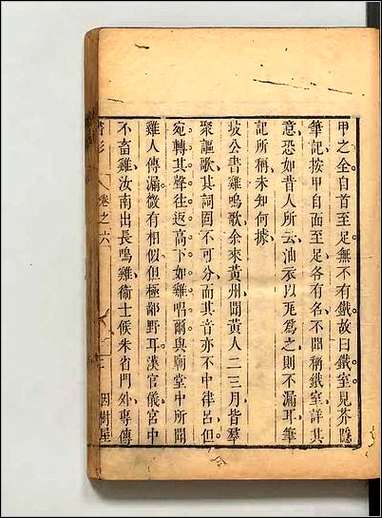 甲之全自首至足無不有鐵故曰鐵室見芥隱
筆記按甲自面至足各有名不聞稱鐵室詳其
意恐如昔人所云油衣以瓦為之則不漏耳筆
記所稱未知何據
坡公書雞鳴歌余來黃州聞黃人二三月皆羣
聚謳歌其詞固不可分而其音亦不中律呂但
宛轉其聲往返高下如雞唱爾與廟堂中所聞
雞人傳漏微有相似但極鄙野耳漢官儀宮中
不畜雞汝南出長鳴雞衛士候朱雀門外專傳
書影 卷之六 因樹屋